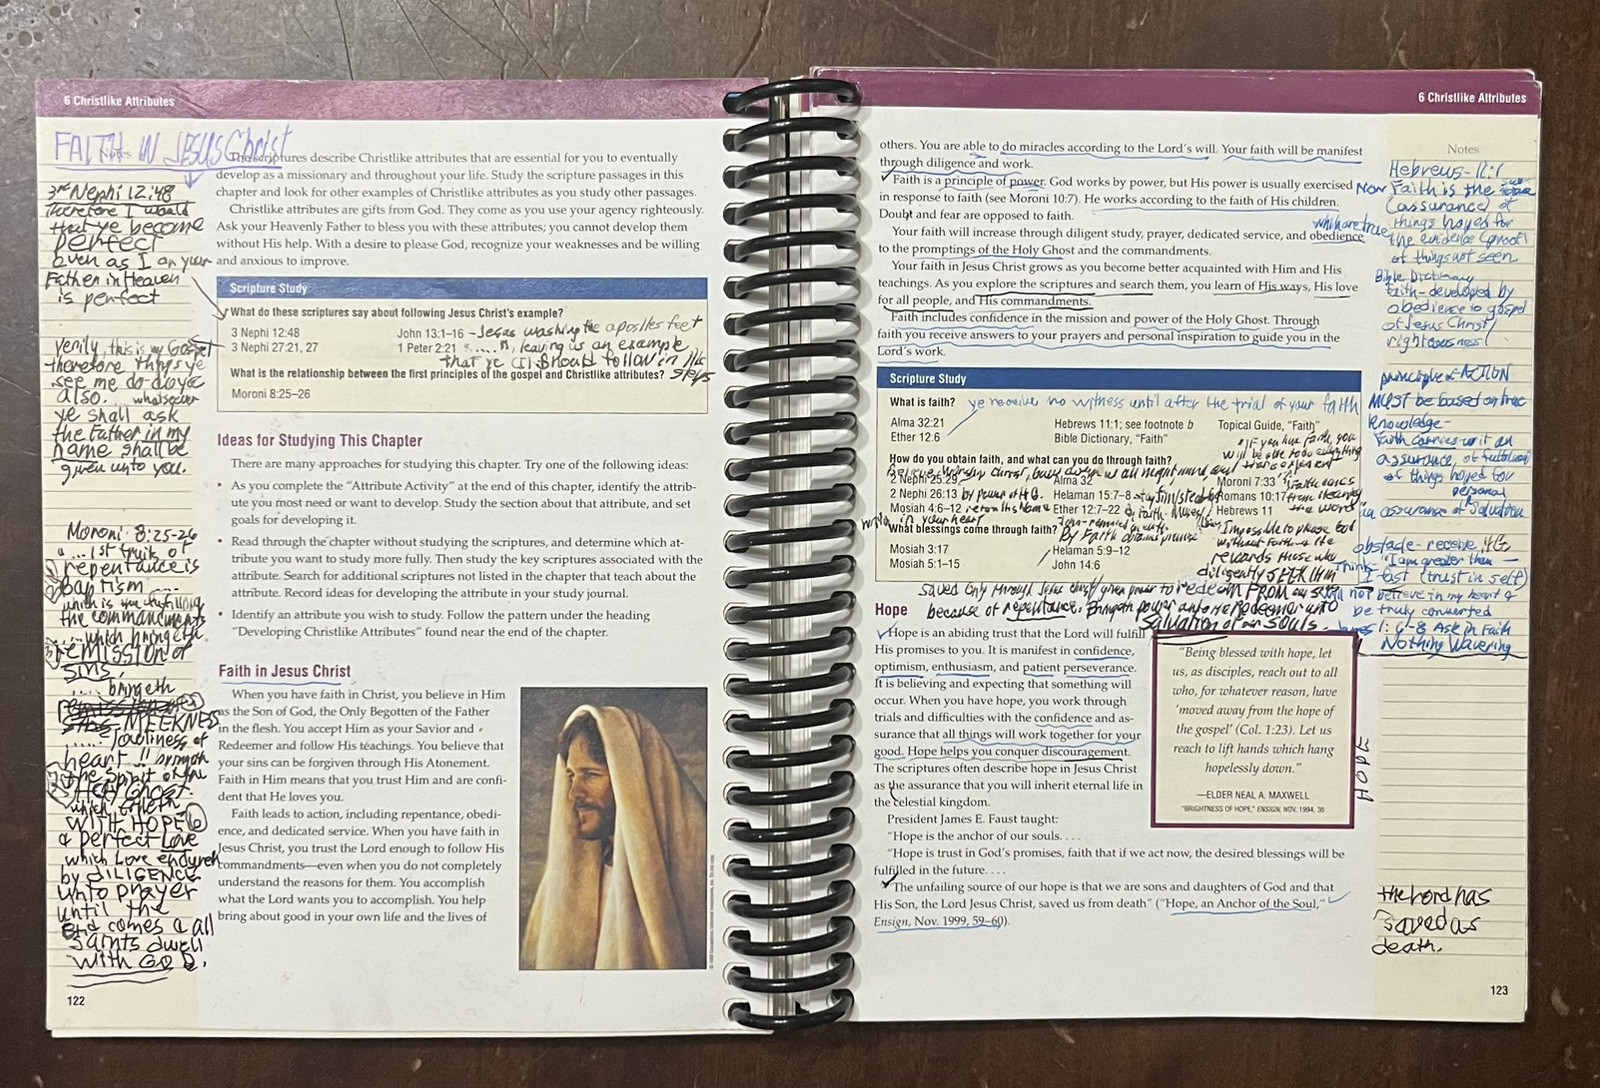 6 Christlike Attributes
FAITH IN JESUS Christ
Notes
3rd Nephi 12:48
Therefore I would
that ye become
perfect
even as I or your
Father in Heaven
is perfect
Verily, this is my Gospel
therefore things ye
see me do do ye
also. whatsoever
ye shall ask
the Father in my
name shall be
given unto you.
Moroni 8:25-26
"...1st fruits of
repentance is
Baptism ....
which is me fulfilling
the commandments
...which bringeth
remission of
sins,
.... bringeth
MEEKNESS
..... lowliness of
heart !! bringeth
the Spirit of the
Holy Ghost
which filleth
with HOPE
& perfect Love
which Love endureth
by DILIGENCE
unto prayer
until the
End comes & all
Saints dwell
with GOD.
The scriptures describe Christlike attributes that are essential for you to eventually
develop as a missionary and throughout your life. Study the scripture passages in this
chapter and look for other examples of Christlike attributes as you study other passages.
Christlike attributes are gifts from God. They come as you use your agency righteously.
Ask your Heavenly Father to bless you with these attributes; you cannot develop them
without His help. With a desire to please God, recognize your weaknesses and be willing
and anxious to improve.
Scripture Study
What do these scriptures say about following Jesus Christ's example?
3 Nephi 12:48 John 13:1–16 - Jesus washing the apostles feet
3 Nephi 27:21, 27 1 Peter 2:21 "..... leaving us an example,
that ye (I) Should follow in His
steps
What is the relationship between the first principles of the gospel and Christlike attributes?
Moroni 8:25–26
Ideas for Studying This Chapter
There are many approaches for studying this chapter. Try one of the following ideas:
• As you complete the "Attribute Activity" at the end of this chapter, identify the attrib-
ute you most need or want to develop. Study the section about that attribute, and set
goals for developing it.
• Read through the chapter without studying the scriptures, and determine which at-
tribute you want to study more fully. Then study the key scriptures associated with the
attribute. Search for additional scriptures not listed in the chapter that teach about the
attribute. Record ideas for developing the attribute in your study journal.
• Identify an attribute you wish to study. Follow the pattern under the heading
"Developing Christlike Attributes" found near the end of the chapter.
Faith in Jesus Christ
When you have faith in Christ, you believe in Him
as the Son of God, the Only Begotten of the Father
in the flesh. You accept Him as your Savior and
Redeemer and follow His teachings. You believe that
your sins can be forgiven through His Atonement.
Faith in Him means that you trust Him and are confi-
dent that He loves you.
Faith leads to action, including repentance, obedi-
ence, and dedicated service. When you have faith in
Jesus Christ, you trust the Lord enough to follow His
commandments—even when you do not completely
understand the reasons for them. You accomplish
what the Lord wants you to accomplish. You help
bring about good in your own life and the lives of
122
6 Christlike Attributes
others. You are able to do miracles according to the Lord's will. Your faith will be manifest
through diligence and work.
Faith is a principle of power. God works by power, but His power is usually exercised
in response to faith (see Moroni 10:7). He works according to the faith of His children.
Doubt and fear are opposed to faith.
Your faith will increase through diligent study, prayer, dedicated service, and obedience
to the promptings of the Holy Ghost and the commandments.
Your faith in Jesus Christ grows as you become better acquainted with Him and His
teachings. As you explore the scriptures and search them, you learn of His ways, His love
for all people, and His commandments.
Faith includes confidence in the mission and power of the Holy Ghost. Through
faith you receive answers to your prayers and personal inspiration to guide you in the
Lord's work.
Scripture Study
What is faith? ye receive no witness until after the trial of your faith
Alma 32:21 Hebrews 11:1; see footnote b Topical Guide, "Faith"
Ether 12:6 Bible Dictionary, "Faith"
"If you have faith, you
will be able to do anything
How do you obtain faith, and what can you do through faith?
2 Nephi 25:29 Alma 32 Moroni 7:33
2 Nephi 26:13 by power of H.G. Helaman 15:7–8 Romans 10:17
Mosiah 4:6–12 Ether 12:7–22 Hebrews 11
in your heart
What blessings come through faith? By Faith obtain promise
Impossible to please God
without Faith & He
rewards those who
diligently SEEK Him
Mosiah 3:17 Helaman 5:9–12
Mosiah 5:1–15 John 14:6
saved only through Jesus Christ given power to redeem FROM our sins
because of repentance. Bringeth power unto the Redeemer unto
salvation of our souls.
Hope
Hope is an abiding trust that the Lord will fulfill
His promises to you. It is manifest in confidence,
optimism, enthusiasm, and patient perseverance.
It is believing and expecting that something will
occur. When you have hope, you work through
trials and difficulties with the confidence and as-
surance that all things will work together for your
good. Hope helps you conquer discouragement.
The scriptures often describe hope in Jesus Christ
as the assurance that you will inherit eternal life in
the celestial kingdom.
President James E. Faust taught:
"Hope is the anchor of our souls. . . .
"Hope is trust in God's promises, faith that if we act now, the desired blessings will be
fulfilled in the future. . . .
"The unfailing source of our hope is that we are sons and daughters of God and that
His Son, the Lord Jesus Christ, saved us from death" ("Hope, an Anchor of the Soul,"
Ensign, Nov. 1999, 59–60).
"Being blessed with hope, let
us, as disciples, reach out to all
who, for whatever reason, have
'moved away from the hope of
the gospel' (Col. 1:23). Let us
reach to lift hands which hang
hopelessly down."
—ELDER NEAL A. MAXWELL
"BRIGHTNESS OF HOPE," ENSIGN, NOV. 1994, 36
HOPE
Notes
Hebrews - 11:1
Now Faith is the
(assurance) of
things hoped for
the evidence (proof)
of things not seen
which are true
Bible Dictionary
Faith - developed by
obedience to gospel
of Jesus Christ/
righteousness!
principle of ACTION
MUST be based on true
Knowledge-
Faith carries w/ it an
assurance, of fulfillment
of things hoped for
personal
assurance of Salvation
obstacle - receive H.G.
Think - "I am greater than
I fast (trust in self)
not believe in my heart &
be truly converted
James 1:6-8 Ask in Faith
Nothing Wavering
the Lord has
saved us
death.
123